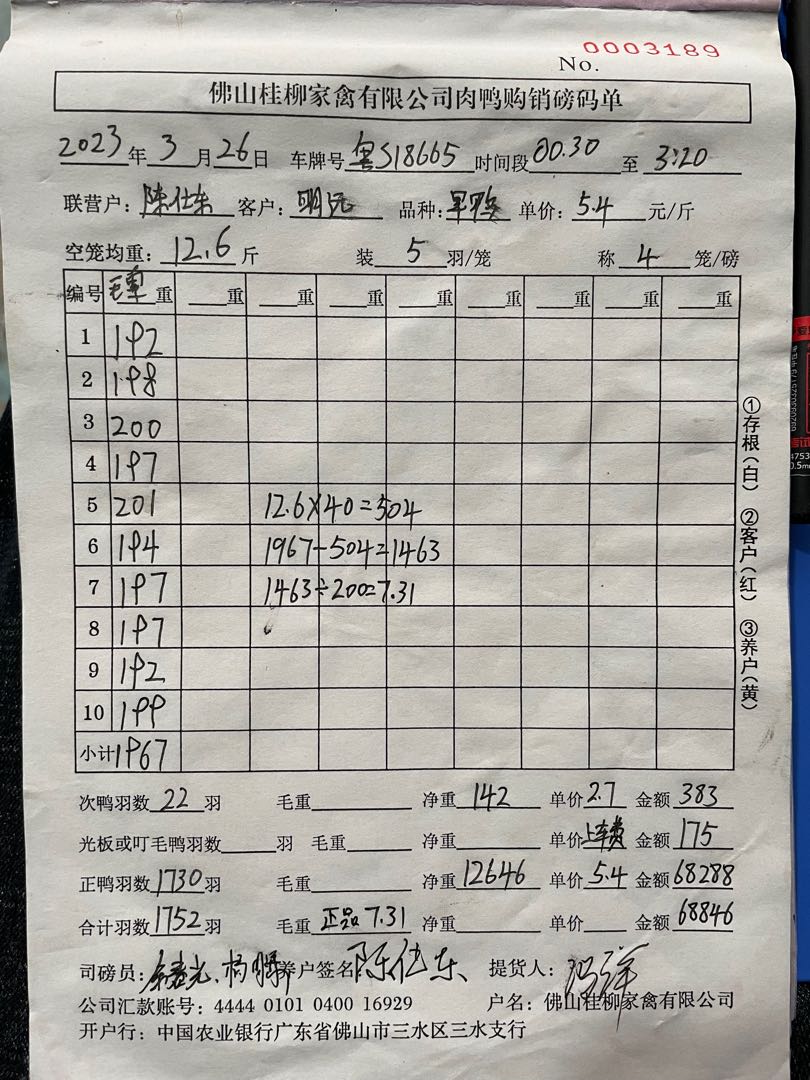 No. 0003189
佛山桂柳家禽有限公司肉鸭购销磅码单
2023年3月26日 车牌号粤S18665时间段00.30至3:20
联营户:陈仕东 客户:明记 品种:旱鸭 单价:5.4元/斤
空笼均重:12.6斤 装5羽/笼 称4笼/磅
编号 毛重 重 重 重 重 重 重 重 重
1 192
2 198
3 200
4 197
5 201 12.6×40=504
6 194 1967-504=1463
7 197 1463÷200=7.31
8 197
9 192
10 199
小计1967
①存根(白) ②客户(红) ③养户(黄)
次鸭羽数22羽 毛重 净重142 单价2.7 金额383
光板或叮毛鸭羽数 羽 毛重 净重 单价上车费 金额175
正鸭羽数1730羽 毛重 净重12646 单价5.4 金额68288
合计羽数1752羽 毛重正品7.31 净重 单价 金额68846
司磅员: 养户签名陈仕东 提货人:
公司汇款账号:4444 0101 0400 16929 户名:佛山桂柳家禽有限公司
开户行:中国农业银行广东省佛山市三水区三水支行